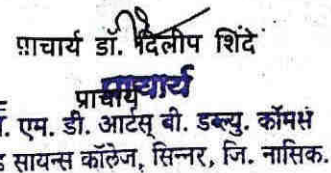 प्राचार्य डॉ. दिलीप शिंदे
प्राचार्य
प्राचार्य
एम. डी. आर्टस् बी. डब्ल्यु. कॉमर्स
सायन्स कॉलेज, सिन्नर, जि. नासिक.